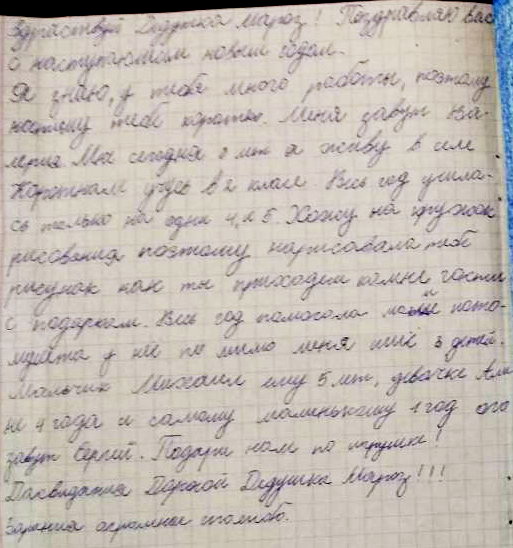 Здраствуй Дедушка Мароз! Поздравляю вас
с наступающим новым годом.
Я знаю, у тебя много работы, поэтому
напишу тебе коротко. Меня завут Ва-
лерия. Мне сегодня 8 лет я живу в селе
учусь в 2 класе. Весь год училa-
сь только на одни 4, и 5. Хожу на кружок
рисования поэтому нарисовала тебе
рисунак как ты приходем камне гости
с подаркам. Весь год помогала маме пото-
мушта у неё по мимо меня ещё 3 детей.
Мальчик Михаил ему 5 лет, девочке Али
не 4 года и самому маленькому 1 год его
завут Сергей. Подари нам по игрушке!
Дасвидания Дорогой Дедушка Мароз!!!
Зарания огромное спасиба.